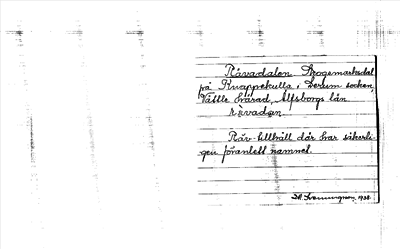 Rävadalen Skogsmarksdal
på Knappekulla, Lerum socken,
Vättle härad, Älfsborgs län
rävadan.
Räv-tillhåll där har säkerli-
gen föranlett namnet.
1938